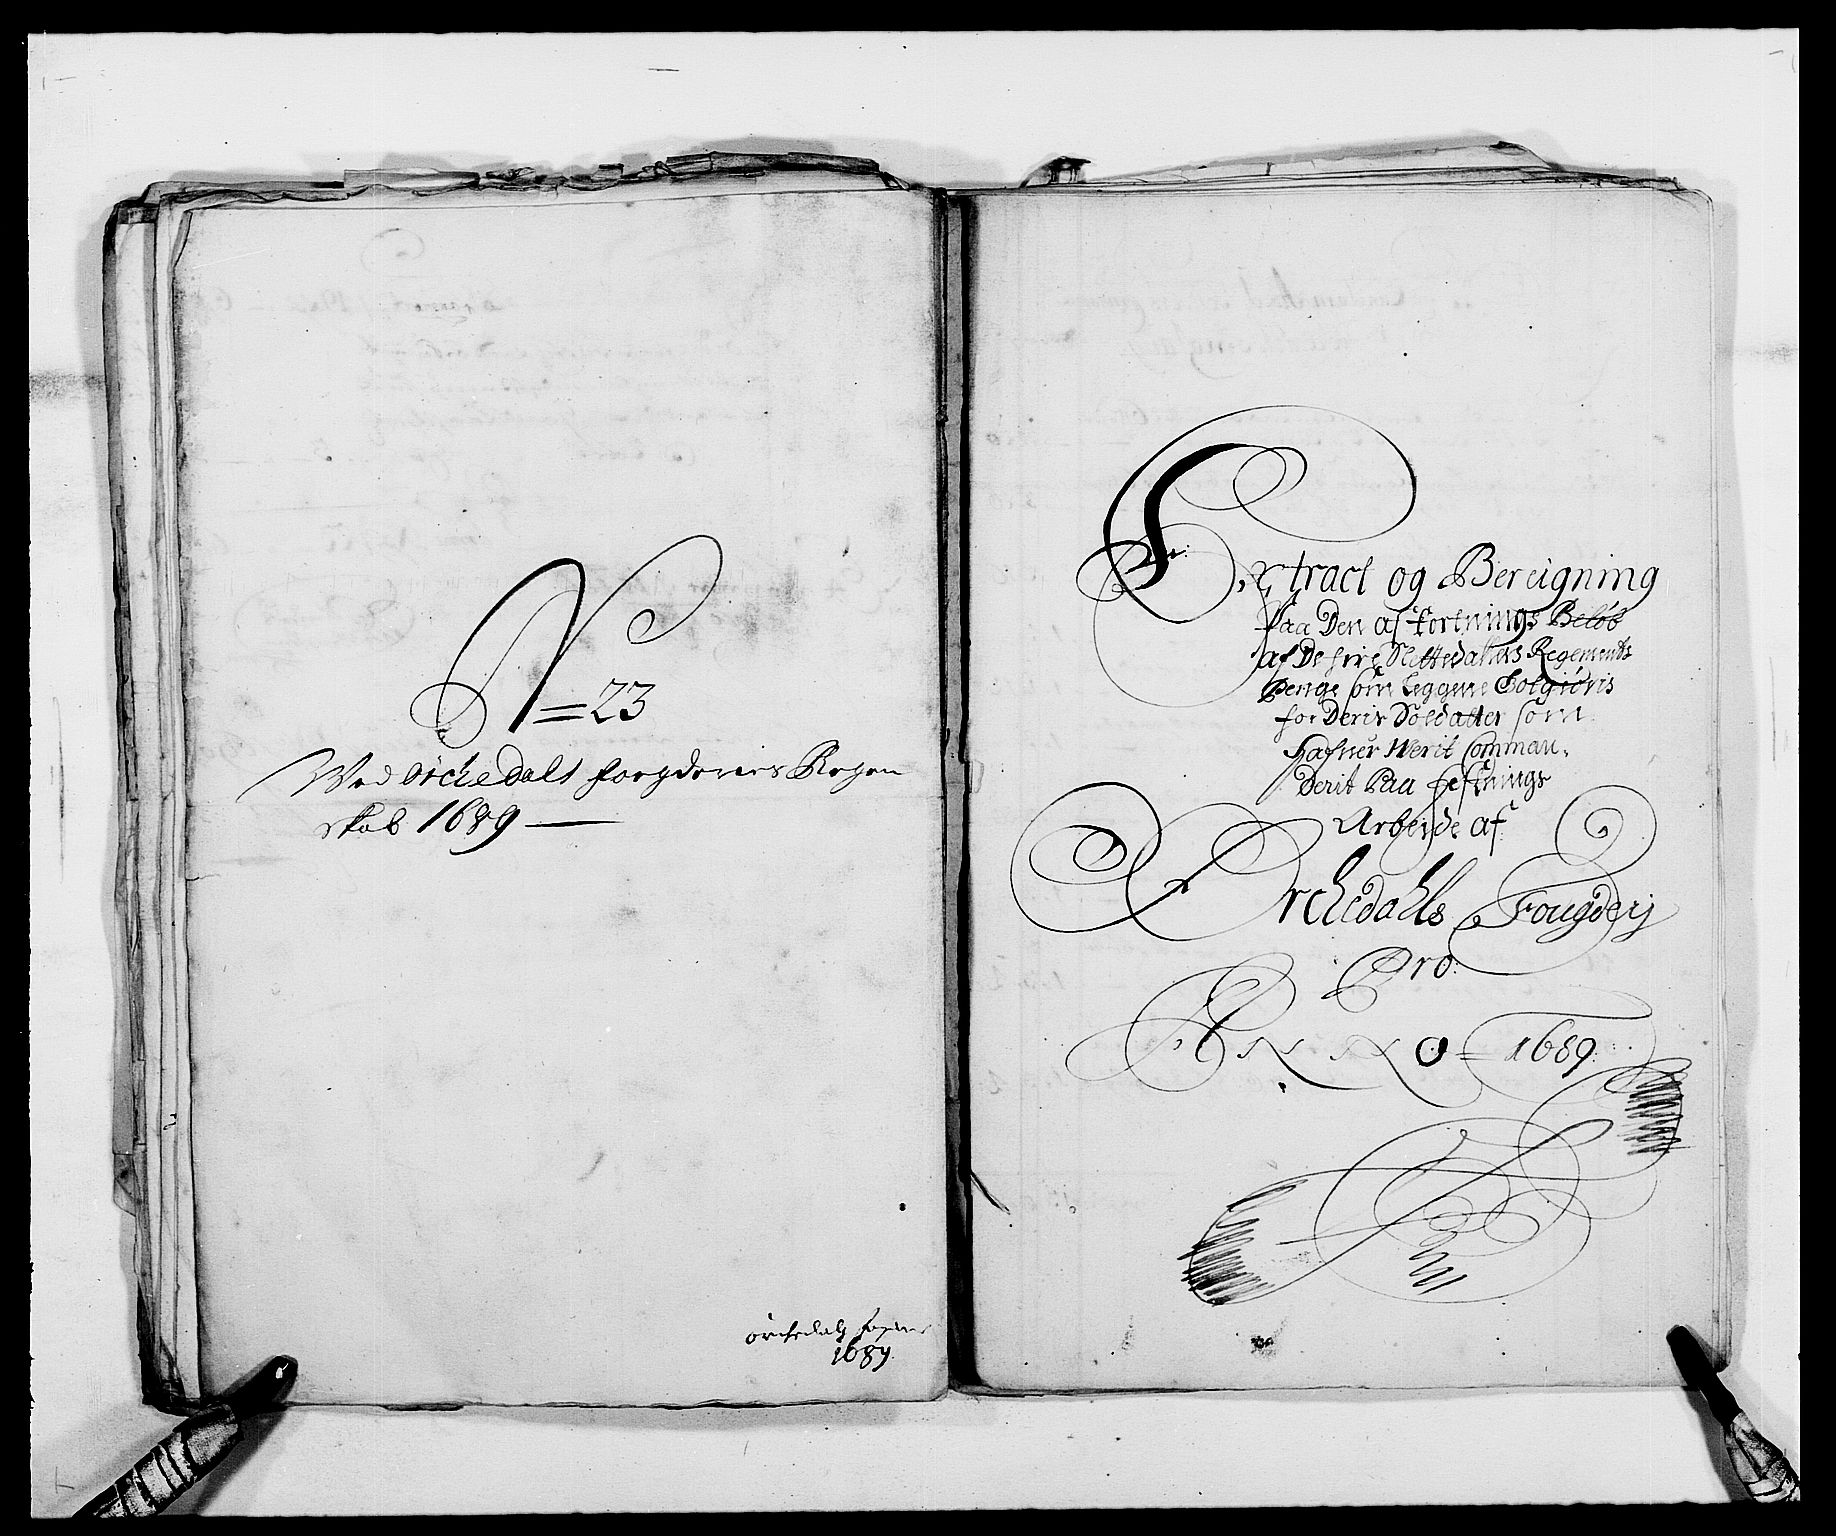 N=23
Ved Orchedals fougderies Regen
skab 1689 —
Orchedals fogderi
1689
Extract og Bereigning
Paa Den afkortnings Beløb
af De fire Slittedallers Regements
Penge som Leggene Godgiøris
for Deris Soldatter som
hafuer Werit Comman-
Derit Paa Festnings
Arbejde af
Orchedahls Fougderj
Pro:
ANNO = 1689